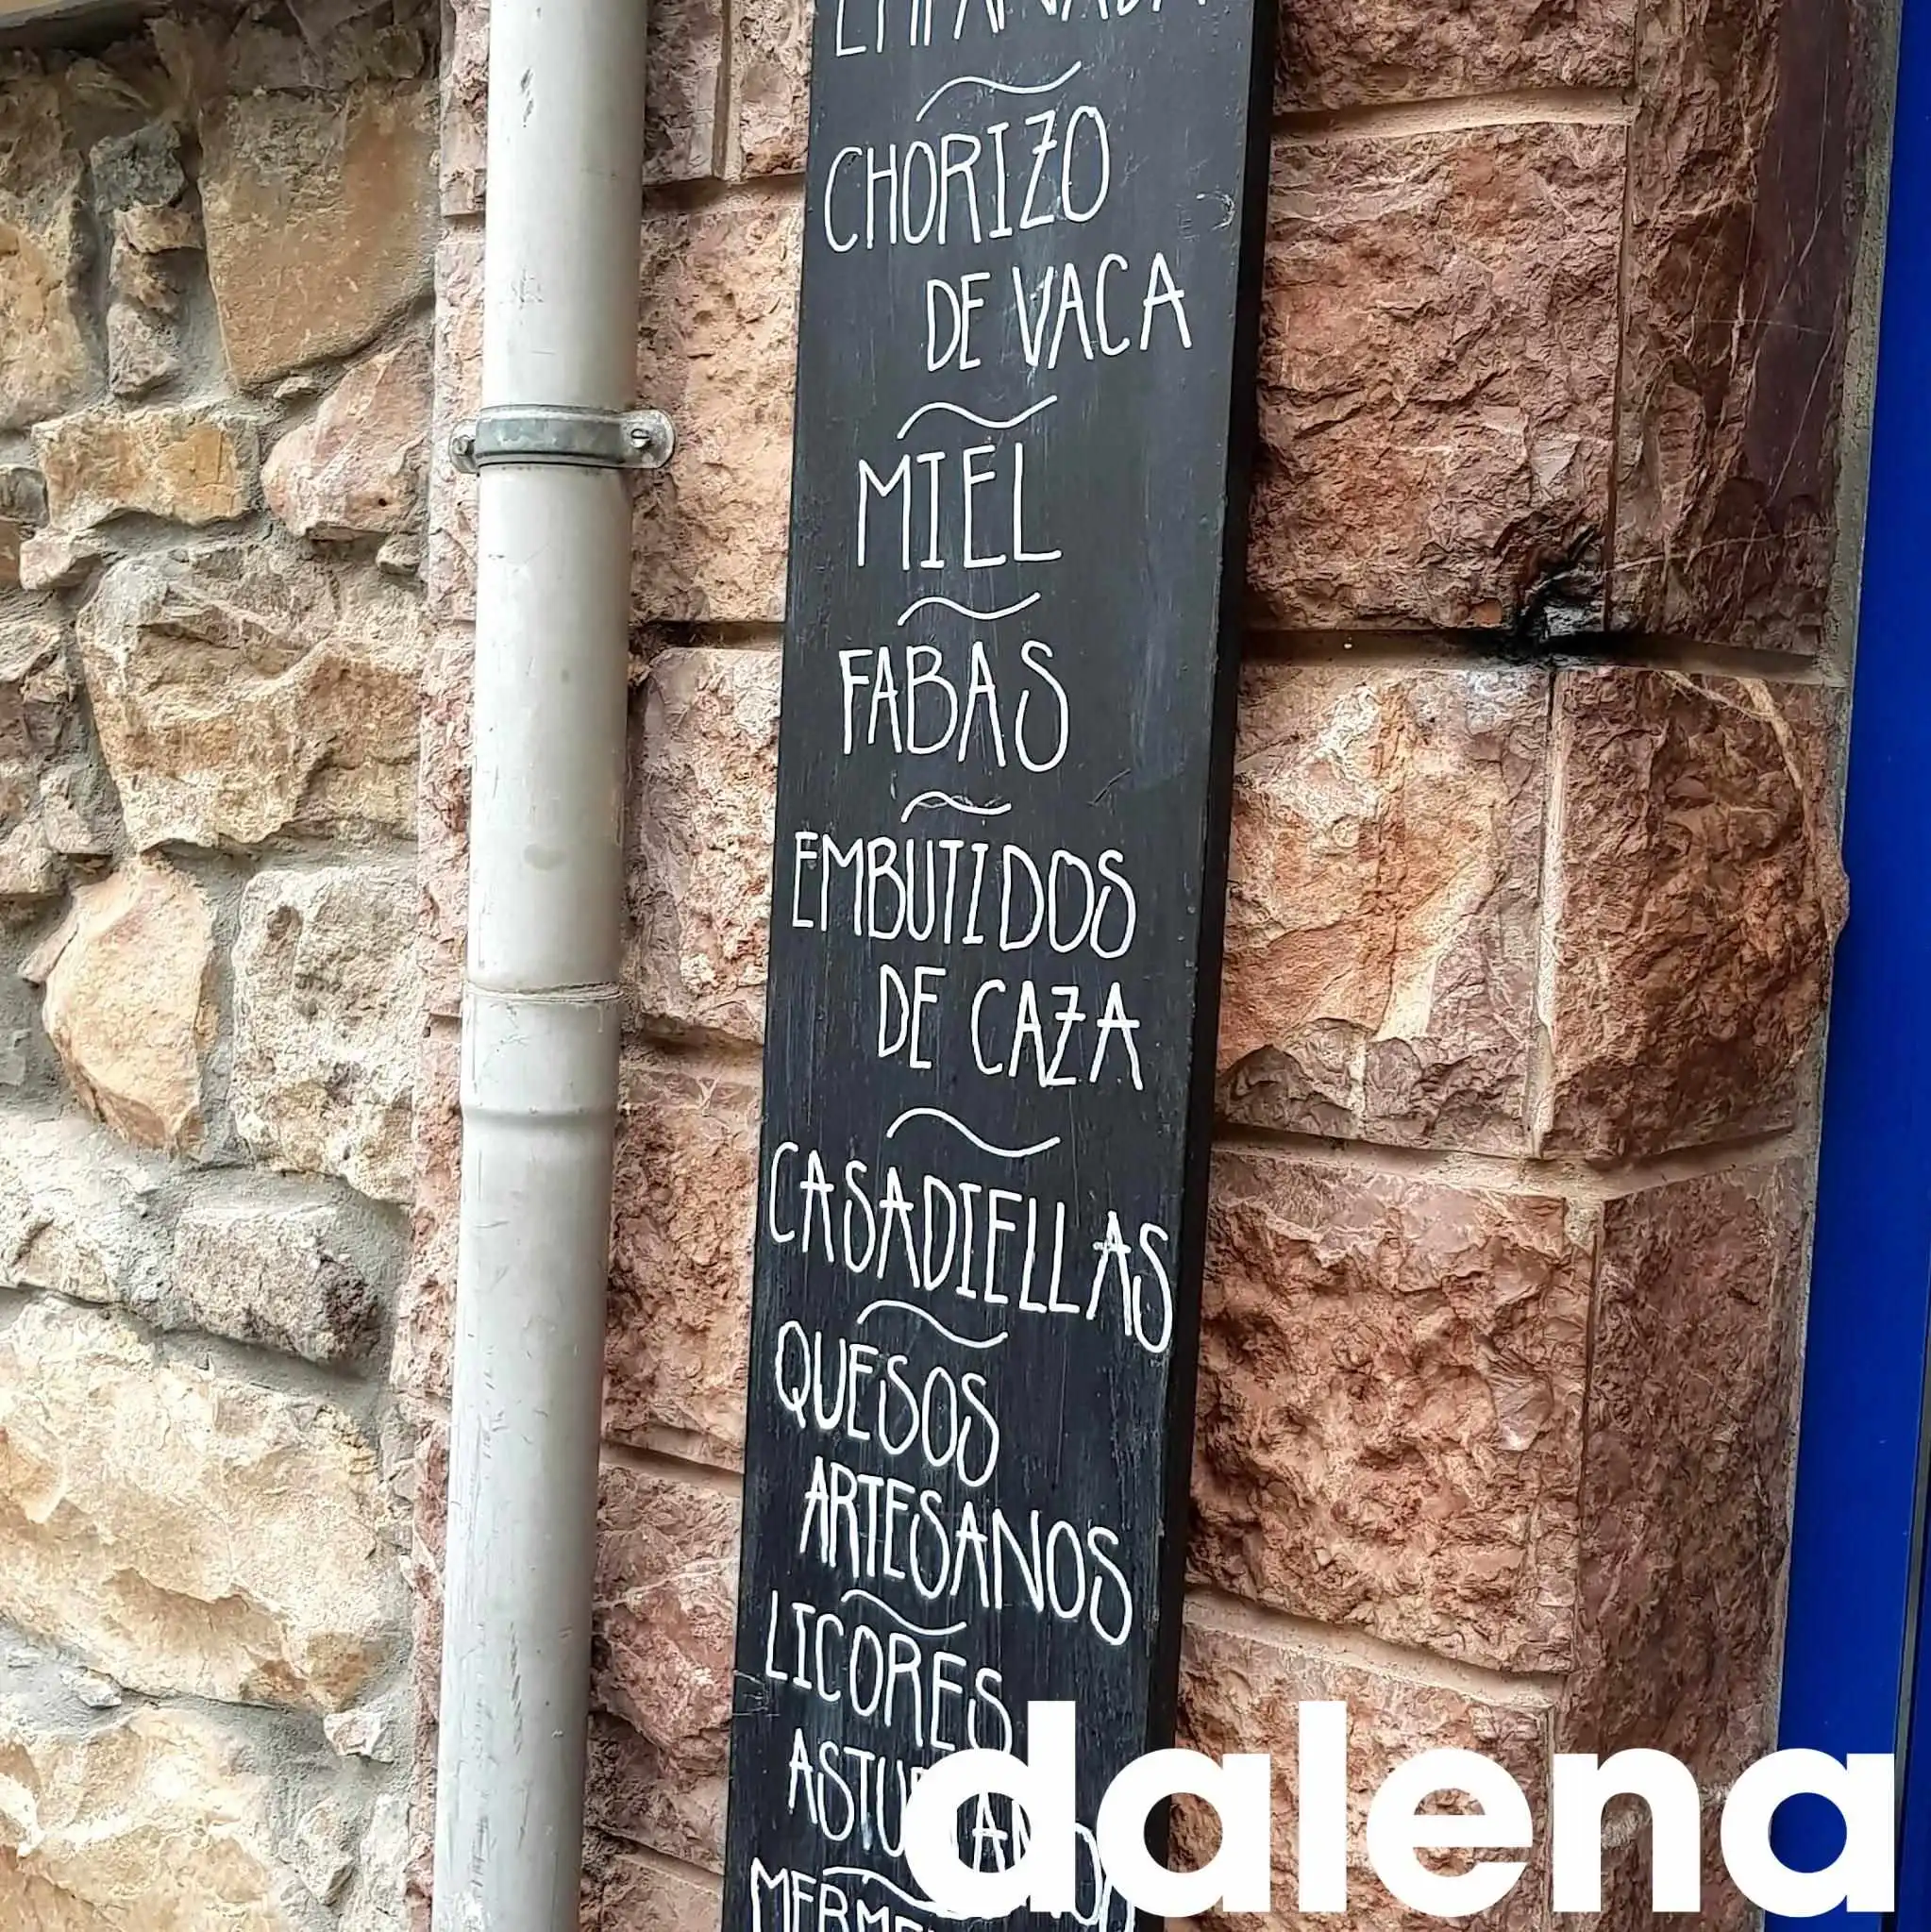 CHORIZO
DE VACA
MIEL
FABAS
EMBUTIDOS
DE CAZA
CASADIELLAS
QUESOS
ARTESANOS
LICORES
dalena